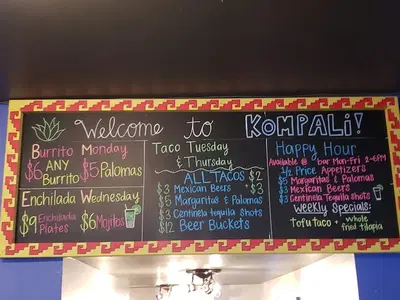 Welcome to KOMPALi!
Burrito Monday
$6 ANY Burrito $5 Palomas
Enchilada Wednesday
$9 Enchilada Plates $6 Mojitos
Taco Tuesday
& Thursday
ALL TACOS $2
$3 Mexican Beers *$3
$5 Margaritas & Palomas
$3 Centinela tequila shots
$12 Beer Buckets
Happy Hour
Available @ bar Mon-Fri 2-6PM
1/2 Price Appetizers
$5 Margaritas & Palomas
$3 Mexican Beers
$3 Centinela Tequila shots
Weekly Specials:
Tofu taco • whole
fried tilapia